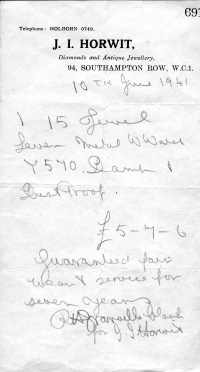 691
Telephone: HOLBORN 0749.
J. I. HORWIT,
Diamonds and Antique Jewellery,
94, SOUTHAMPTON ROW, W.C.1.
10TH June 1941
1 15 Jewel
Lever Metal W Watch
Y570. Damp &
Dust Proof.
£5-7-6
Guaranteed fair
wear & service for
seven years
Clark
for J. I Horwit